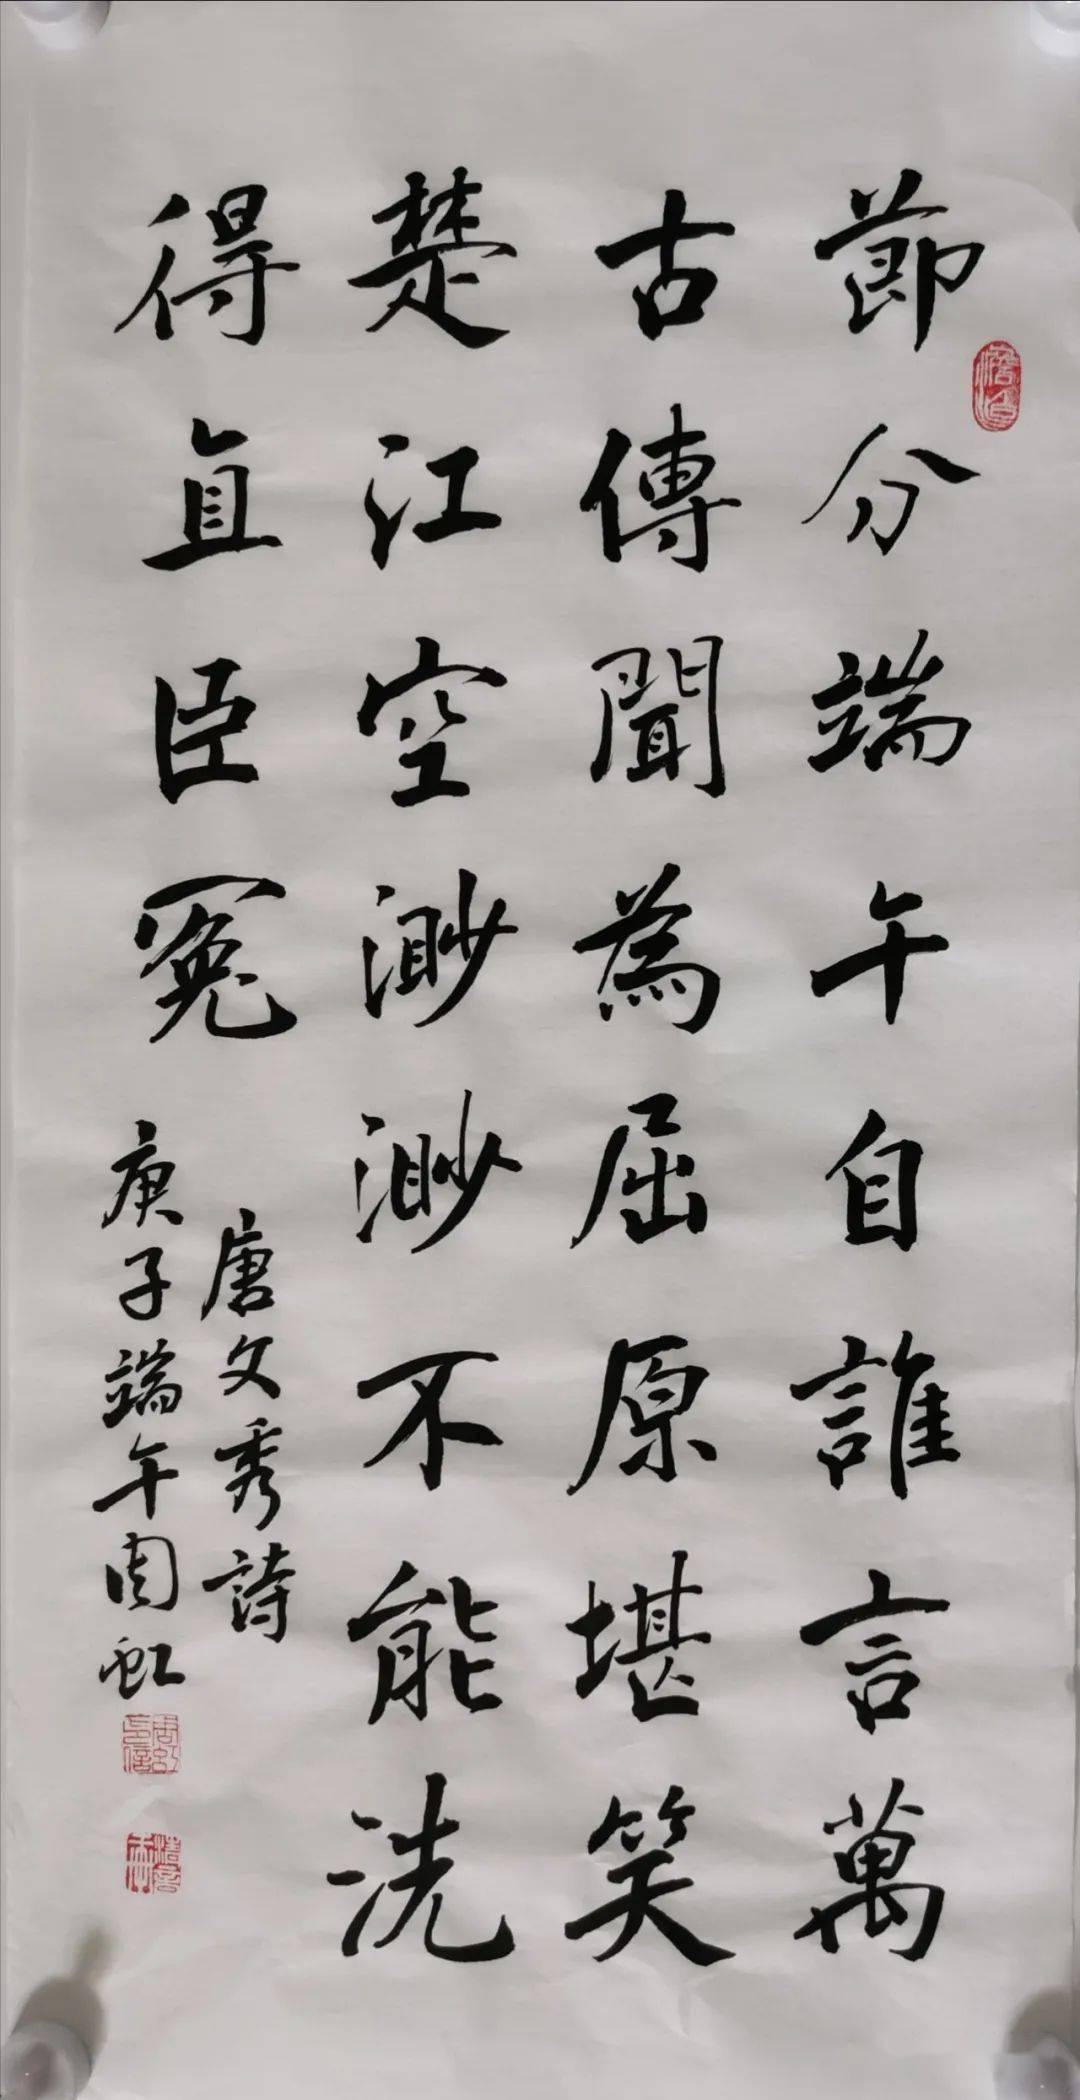 節分端午自誰言萬
古傳聞為屈原堪笑
楚江空渺渺不能洗
得直臣冤
唐文秀詩
庚子端午周虹